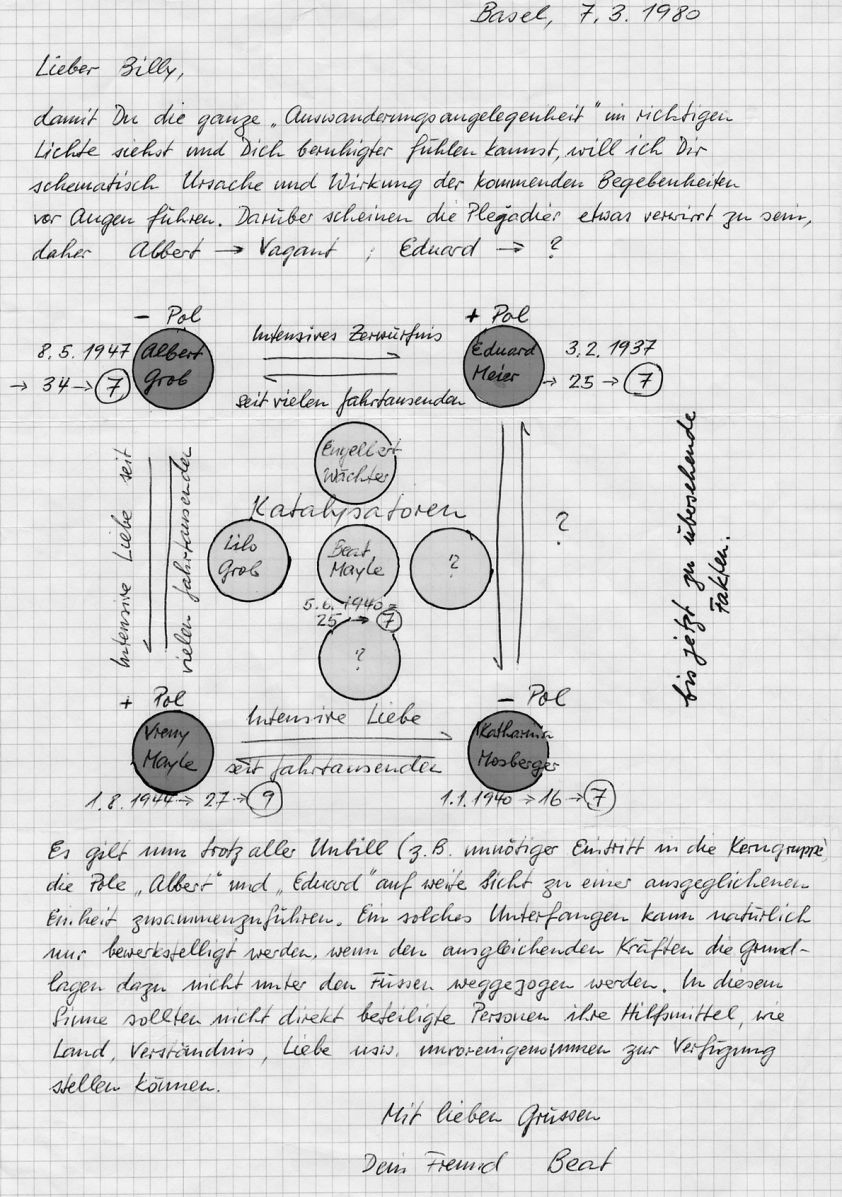 Basel, 7.3.1980
Lieber Billy,
damit Du die ganze „Auswanderungsangelegenheit" im richtigen
Lichte siehst und Dich beruhigter fühlen kannst, will ich Dir
schematisch Ursache und Wirkung der kommenden Begebenheiten
vor Augen führen. Darüber scheinen die Plejadier etwas verwirrt zu sein,
daher Albert → Vagant ; Eduard → ?
- Pol
+ Pol
8.5.1947
Albert
Grob
→ 34 → 7
Intensives Zerwürfnis
seit vielen Jahrtausenden
Eduard
Meier
3.2.1937
→ 25 → 7
Intensive Liebe seit
vielen Jahrtausenden
Engelbert
Wächter
Katalysatoren
Lilo
Grob
Beat
Mayle
?
5.6.1940 =
25 → 7
?
?
bis jetzt zu übersehende
Fakten.
+ Pol
- Pol
Vreny
Mayle
Intensive Liebe
seit Jahrtausenden
Katharina
Mosberger
1.8.1944 → 27 → 9
1.1.1940 → 16 → 7
Es gilt nun trotz aller Unbill (z.B. unnötiger Eintritt in die Kerngruppe)
die Pole „Albert" und „Eduard" auf weite Sicht zu einer ausgeglichenen
Einheit zusammenzuführen. Ein solches Unterfangen kann natürlich
nur bewerkstelligt werden, wenn den ausgleichenden Kräften die Grund-
lagen dazu nicht unter den Füssen weggezogen werden. In diesem
Sinne sollten nicht direkt beteiligte Personen ihre Hilfsmittel, wie
Land, Verständnis, Liebe usw. unvoreingenommen zur Verfügung
stellen können.
Mit lieben Grüssen
Dein Freund Beat